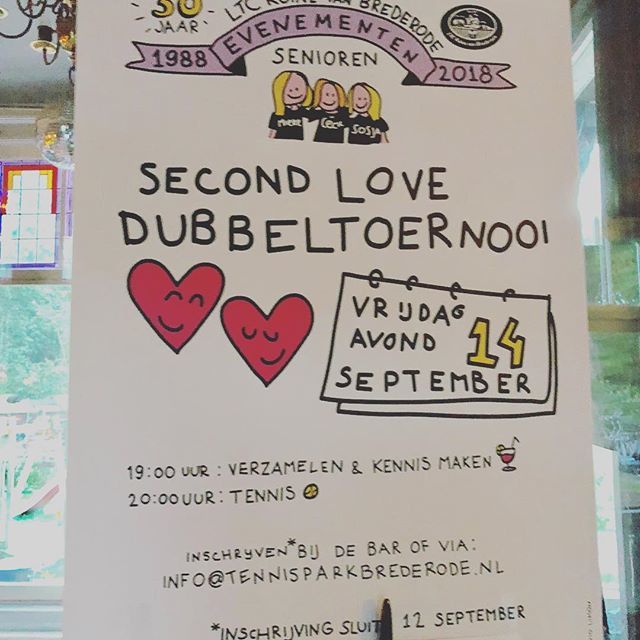 30
JAAR
LTC RUÏNE VAN BREDERODE
1988 EVENEMENTEN 2018
SENIOREN
CECR SOSJA
SECOND LOVE
DUBBELTOERNOOI
VRIJDAG
AVOND 14
SEPTEMBER
19:00 UUR : VERZAMELEN & KENNIS MAKEN
20:00 UUR : TENNIS
INSCHRIJVEN* BIJ DE BAR OF VIA:
INFO@TENNISPARKBREDERODE.NL
*INSCHRIJVING SLUIT 12 SEPTEMBER